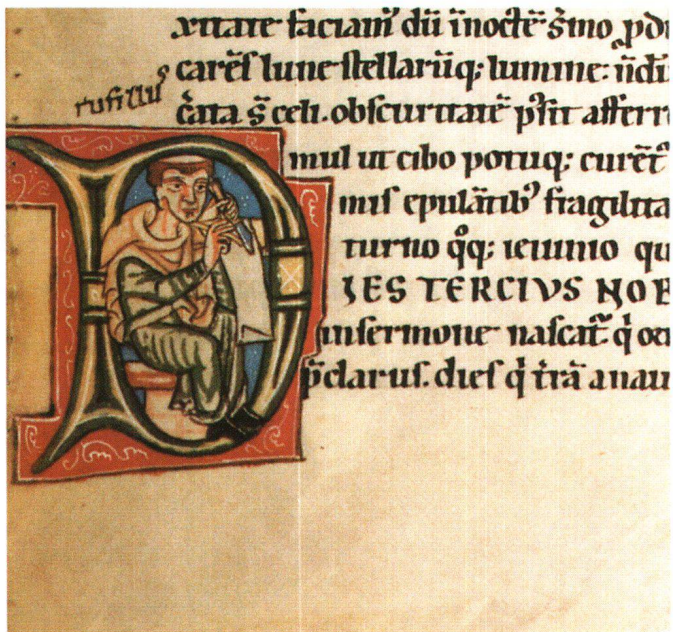 xitate faciam᷒ dū īnoctē s̄mo ꝓdu
carēs lune stellariūq; lumine: ūdi
rufillus
cāta s̄ celi. obscuritatē p̄sit afferr
mul ut cibo potuq; curēt᷒
mis epulātib᷒ fragilita
turno q̊q; ieiunio qu
DIES TERCIVS NOB
insermone nascat᷒
p̄clarus. dies q̇ t̄rā